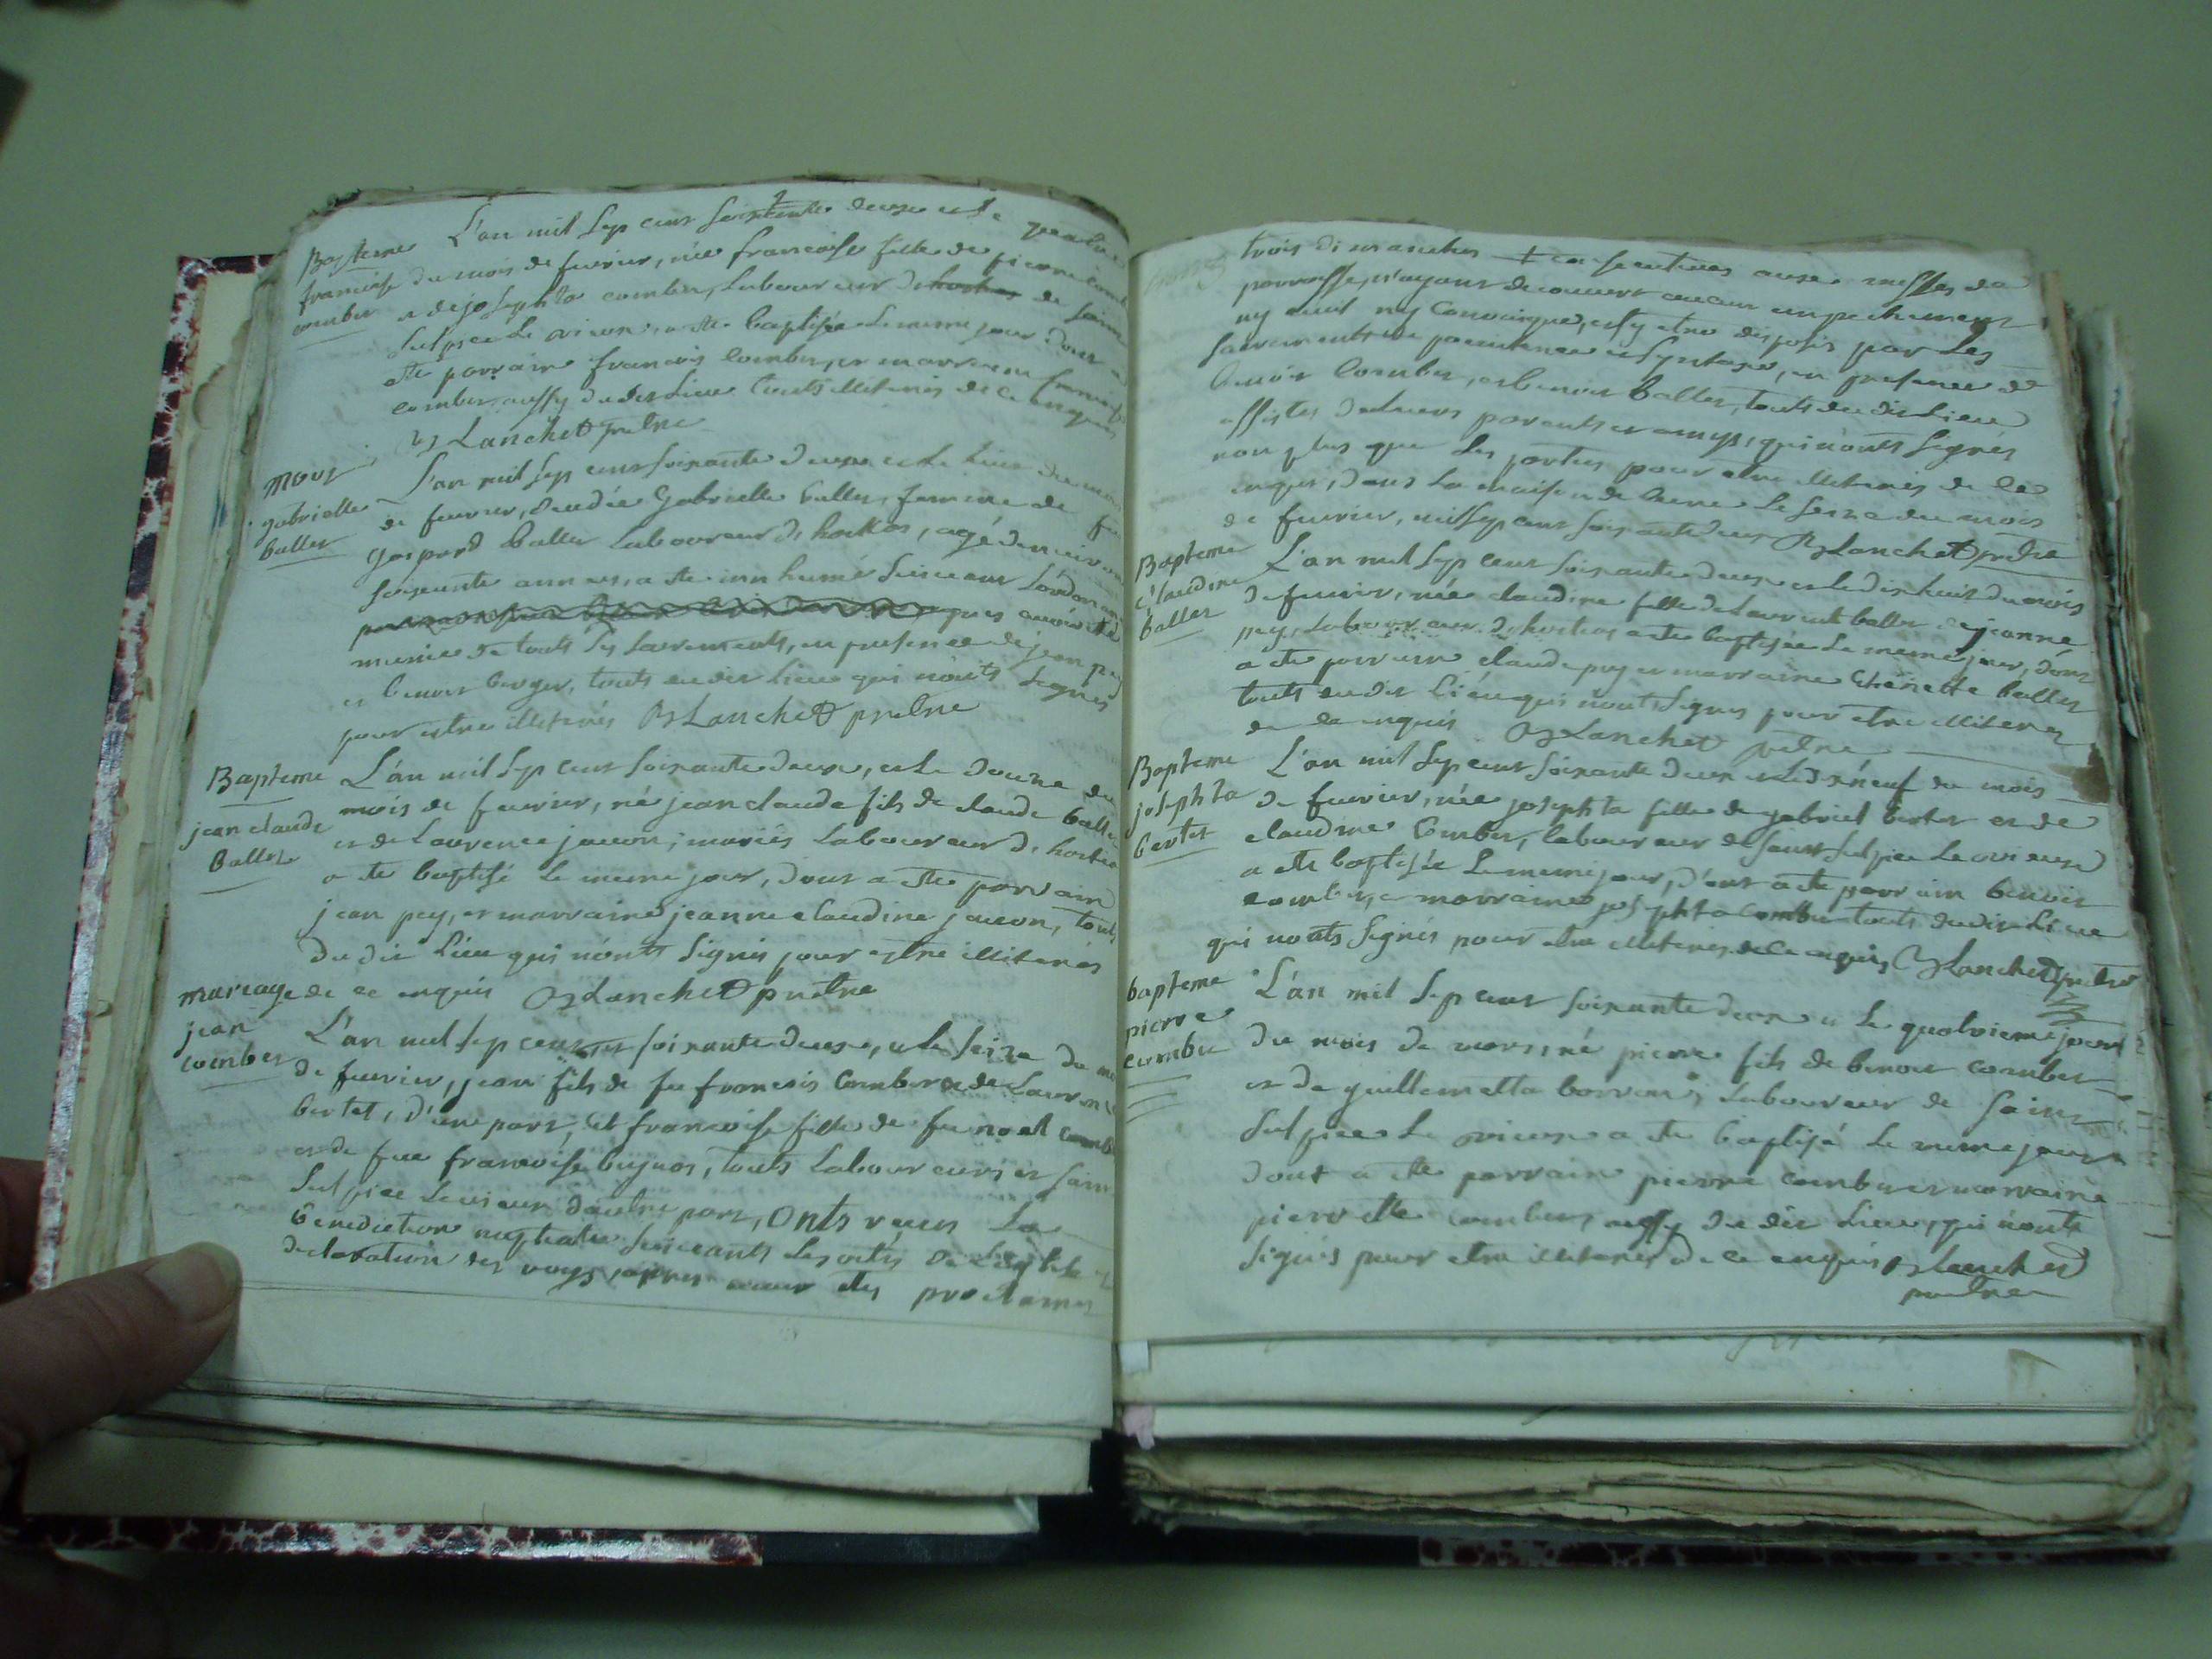 Bapteme
francoise
comber
L'an mil sep cens soixante deuxe et le quatre
du mois de feuvrier, née francoise fille de pierre comb
et de josephta comber, Laboureur de saint
Sulpice Le vieux, a ete baptisée le meme jour dont a
ete parrain francois comber, et marraine francoise
comber, aussy du dit Lieu touts illiterés de ce enquis
Blanchet pretre
mort
gabrielle
baller
L'an mil sep cens soixante deuxe et le
de feuvrier, decedée Gabrielle baller, femme de feu
Gaspard baller Laboureur d'hostias, agé denviron
soixante annees, a ete innhumé suivant
apres avoir eté
munie de touts ses sacrements, en presence de jean pey
et benoit berger, touts du dit Lieu qui nonts signes
pour estre illiterés Blanchet pretre
Bapteme
jean claude
Baller
L'an mil sep cens soixante deuxe, et le douze du
mois de feuvrier, né jean claude fils de claude balle
et de Laurence jacon, mariés Laboureur d'hostia
a ete baptisé le meme jour, dont a ete parrain
jean pey, et marraine jeanne claudine jacon, touts
du dit Lieu qui nonts signés pour estre illiterés
de ce enquis Blanchet pretre
mariage
jean
comber
L'an mil sep cens soixante deuxe, et le seize du mo
de feuvrier, jean fils de fu francois comber et de Laurence
bertet, d'une part, et francoise fille de fu noel comb
et de fue francoise, touts Laboureurs et sain
Sulpice Levieux dautre part, onts reçus La
benediction nuptiale suivants les
declaration des, apres avoir etes proclamés
trois dimanches + consecutives auxe messes de
parroisse, n'ayant decouvert aucun empechement
ny civil ny canonique, et sy etre disposés par les
sacrements de penitence et, en presence de
benoit comber, et benoit baller, touts du dit Lieu
assistes parents et amys, qui nonts signés
non plus que les parties pour etre illiterés de ce
enquis, dans la maison de Cure le seize du mois
de feuvrier, mil sep cens soixante deux Blanchet pretre
Bapteme
claudine
baller
L'an mil sep cens soixante deuxe et le dix huit du mois
de feuvrier, née claudine fille de Laurent baller et jeanne
pey, Laboureur d'hostias a ete baptisée le meme jour, dont
a ete parrain claude pey et marraine baller
touts du dit Lieu qui nonts signes pour etre illiteres
de ce enquis Blanchet pretre
Bapteme
josephta
bertet
L'an mil sep cens soixante deux et le dixneuf du mois
de feuvrier, née josephta fille de gabriel bertet et de
claudine comber, laboureur de saint sulpice Le vieuxe
a ete baptisée le meme jour, d'ont a ete parrain benoit
comber, et marraine josephta comber touts du dit Lieu
qui nonts signés pour etre illiteres de ce enquis, Blanchet pretre
bapteme
pierre
comber
L'an mil sep cens soixante deux et le quatrieme jour
du mois de mars, né pierre fils de benoit comber
et de guillemetta, Laboureur de saint
Sulpice Le vieuxe a ete baptisé le meme jour
dont a ete parrain pierre comber et marraine
pierrette comber, aussy du dit Lieu, qui nonts
signés pour etre illiteres de ce enquis Blanchet
pretre